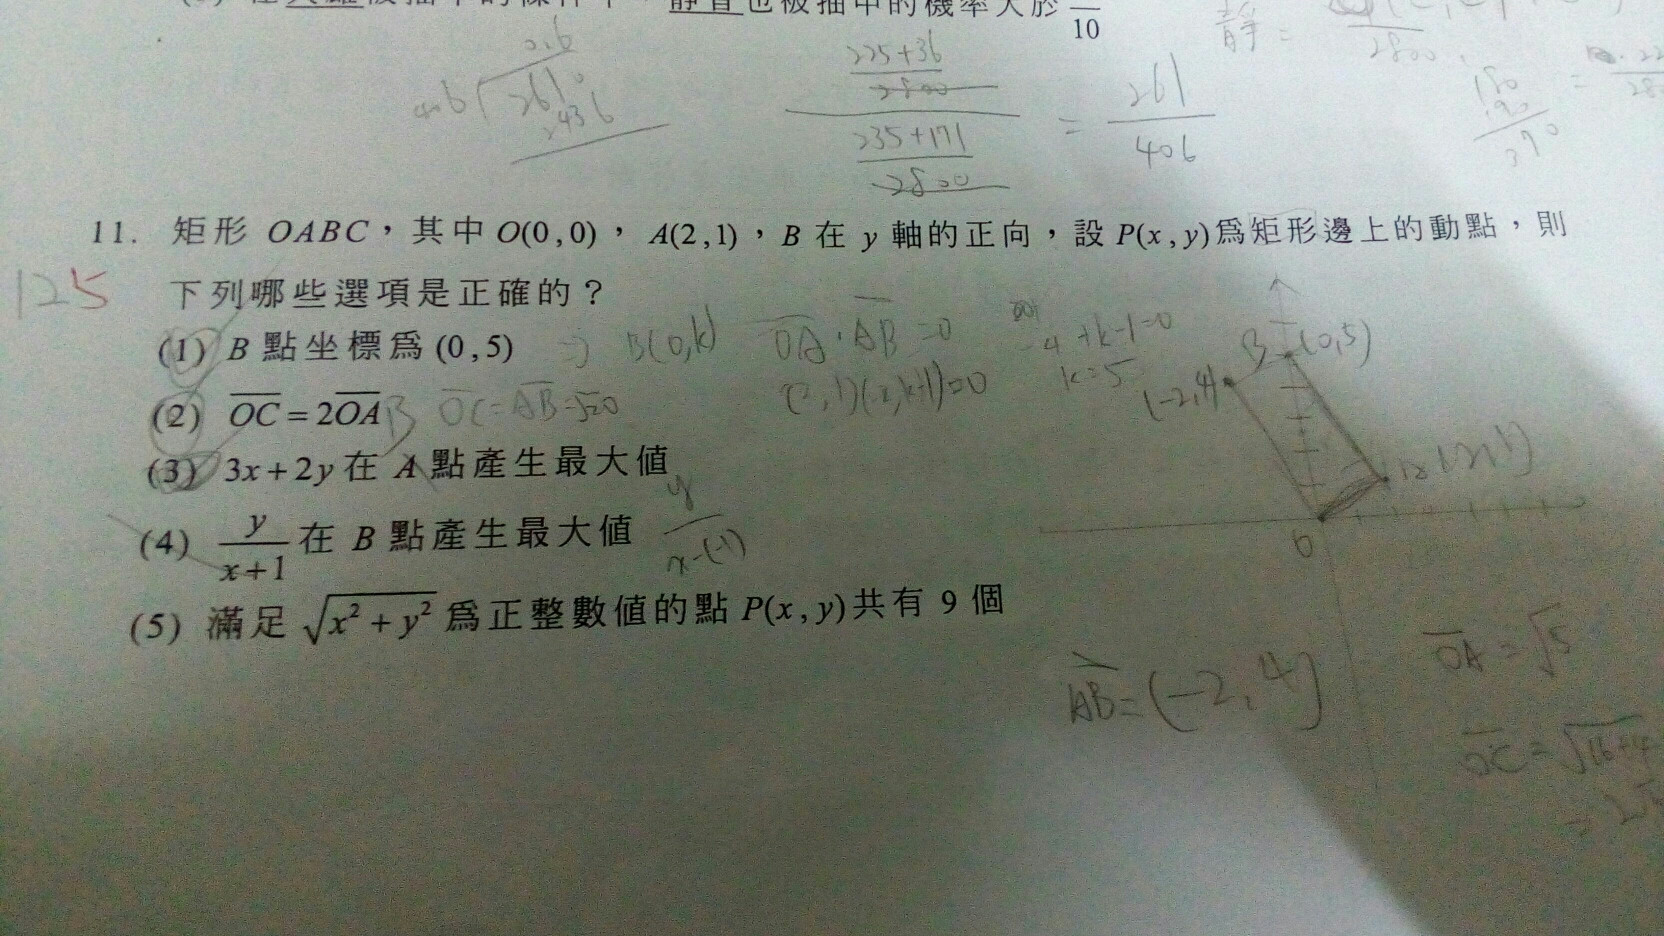 也被抽中的機率大於
10
0.6
406 2610
2436
225+36
2800
235+171
2800
= 261
406
靜 =
2800
11. 矩形 OABC,其中 O(0,0), A(2,1),B 在 y 軸的正向,設 P(x,y)為矩形邊上的動點,則
125 下列哪些選項是正確的?
(1) B 點坐標為 (0,5) ⇒ B(0,k) OA·AB=0 -4+k-1=0
k=5
(2) OC = 2OA OC=AB=√20
(3) 3x+2y 在 A 點產生最大值
(4) y/(x+1) 在 B 點產生最大值 y/(x-(-1))
(5) 滿足 √(x²+y²) 為正整數值的點 P(x,y)共有 9 個
B (0,5)
(-2,4)
(2,1)
0
AB=(-2,4)
OA=√5
OC=√16+4